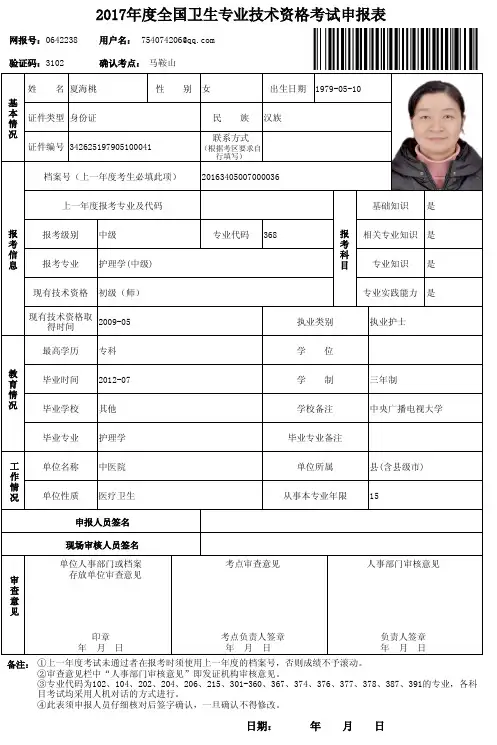 2017年度全国卫生专业技术资格考试申报表
网报号：0642238 用户名： 754074206@qq.com
验证码：3102 确认考点： 马鞍山
基本情况
姓 名 夏海桃 性 别 女 出生日期 1979-05-10
证件类型 身份证 民 族 汉族
证件编号 342625197905100041 联系方式（根据考区要求自行填写）
报考信息
档案号（上一年度考生必填此项） 20163405007000036
上一年度报考专业及代码 报考科目 基础知识 是
报考级别 中级 专业代码 368 相关专业知识 是
报考专业 护理学(中级) 专业知识 是
现有技术资格 初级（师） 专业实践能力 是
现有技术资格取得时间 2009-05 执业类别 执业护士
教育情况
最高学历 专科 学 位
毕业时间 2012-07 学 制 三年制
毕业学校 其他 学校备注 中央广播电视大学
毕业专业 护理学 毕业专业备注
工作情况
单位名称 中医院 单位所属 县(含县级市)
单位性质 医疗卫生 从事本专业年限 15
申报人员签名
现场审核人员签名
审查意见
单位人事部门或档案 考点审查意见 人事部门审核意见
存放单位审查意见
印章 考点负责人签章 负责人签章
年 月 日 年 月 日 年 月 日
备注：①上一年度考试未通过者在报考时须使用上一年度的档案号，否则成绩不予滚动。
②审查意见栏中“人事部门审核意见”即发证机构审核意见。
③专业代码为102、104、202、204、206、215、301-360、367、374、376、377、378、387、391的专业，各科
目考试均采用人机对话的方式进行。
④此表须申报人员仔细核对后签字确认，一旦确认不得修改。
日期： 年 月 日